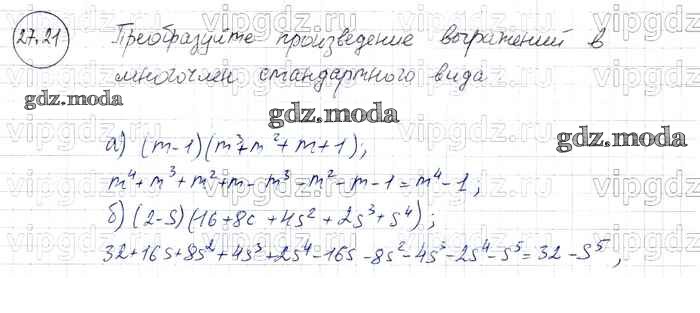 27.21 Преобразуйте произведение выражений в
многочлен стандартного вида
gdz.moda
gdz.moda
gdz.moda
а) (m-1)(m³+m²+m+1);
m⁴+m³+m²+m-m³-m²-m-1=m⁴-1;
б) (2-s)(16+8s+4s²+2s³+s⁴);
32+16s+8s²+4s³+2s⁴-16s-8s²-4s³-2s⁴-s⁵=32-s⁵,